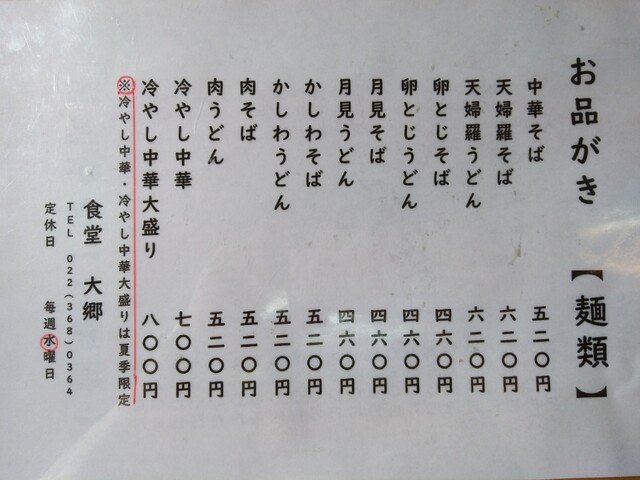 お品がき 【麺類】
中華そば 五二〇円
天婦羅そば 六二〇円
天婦羅うどん 六二〇円
卵とじそば 四六〇円
卵とじうどん 四六〇円
月見そば 四六〇円
月見うどん 四六〇円
かしわそば 五二〇円
かしわうどん 五二〇円
肉そば 五二〇円
肉うどん 五二〇円
冷やし中華 七〇〇円
冷やし中華大盛り 八〇〇円
※冷やし中華・冷やし中華大盛りは夏季限定
食堂 大郷
TEL 022(368)0364
定休日 毎週水曜日